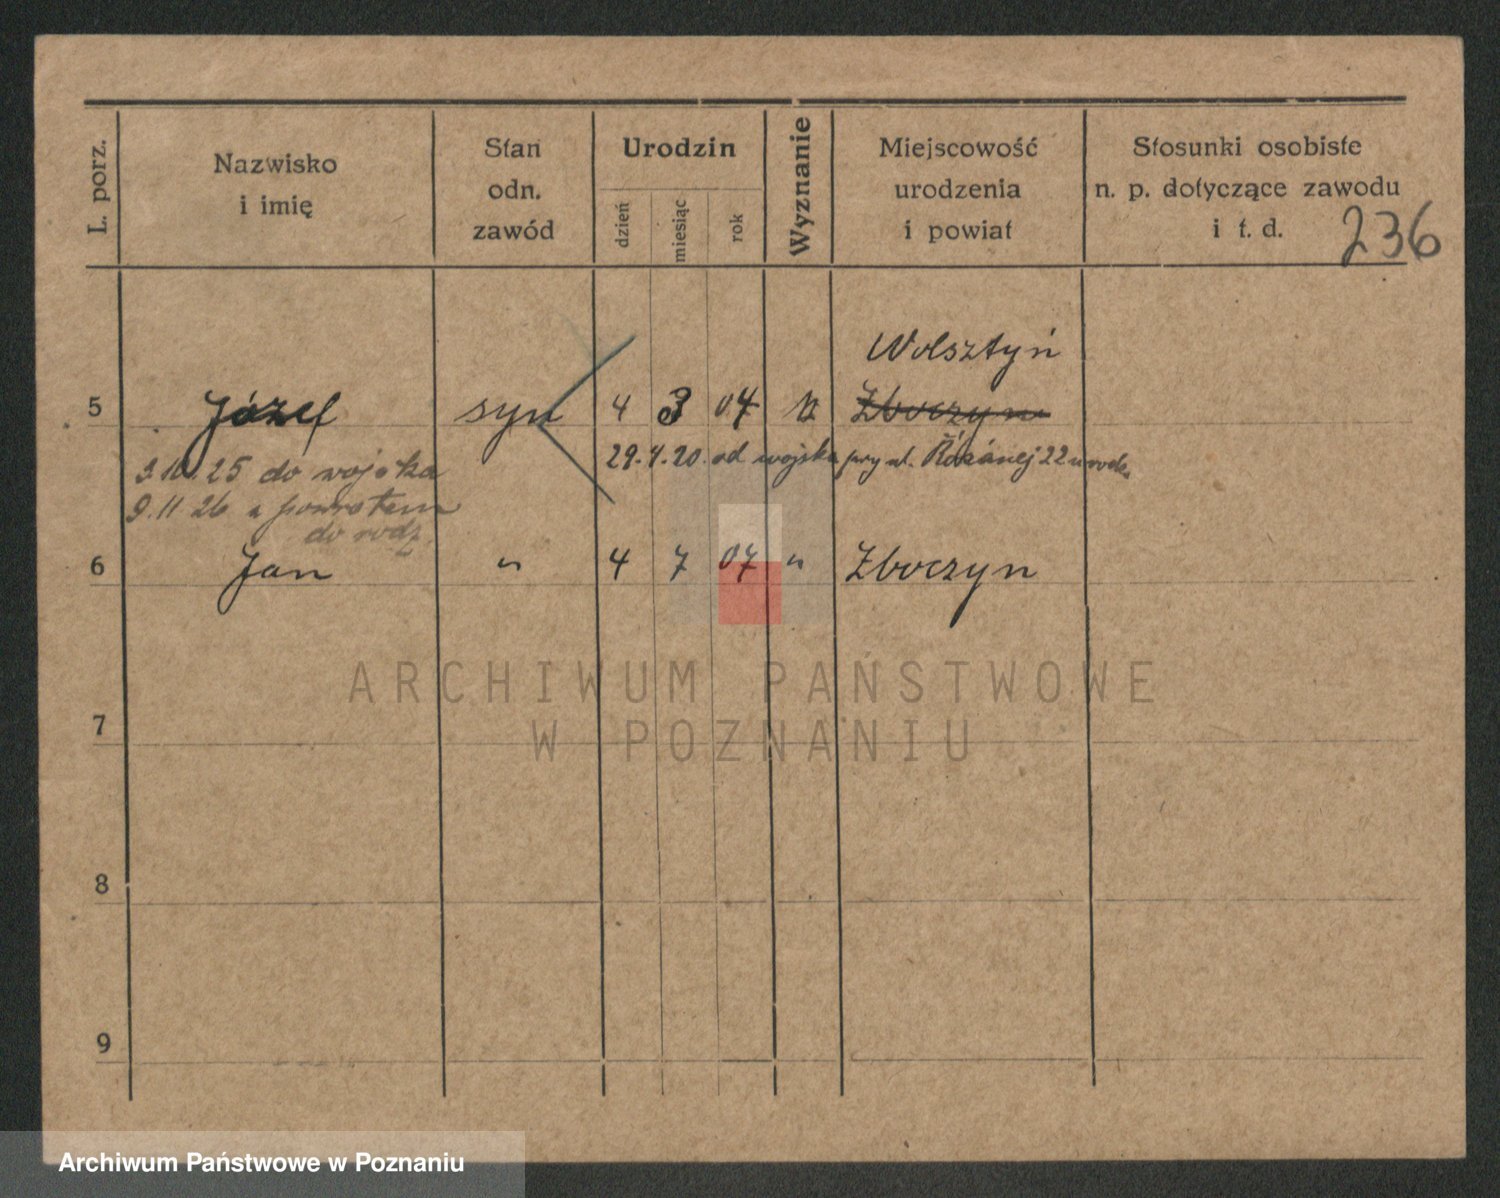 L. porz.
Nazwisko
i imię
Stan
odn.
zawód
Urodzin
dzień
miesiąc
rok
Wyznanie
Miejscowość
urodzenia
i powiat
Stosunki osobiste
n. p. dotyczące zawodu
i t. d.
236
Wolsztyń
5 Józef syn 4 3 04 Zboczyn
29.4.20. od wojska przy ul. Różánej 22
3.10.25 do wojska
9.11 26 z powrotem
do rodz.
6 Jan " 4 7 07 " Zboczyn
ARCHIWUM PAŃSTWOWE
W POZNANIU
7
8
9
Archiwum Państwowe w Poznaniu